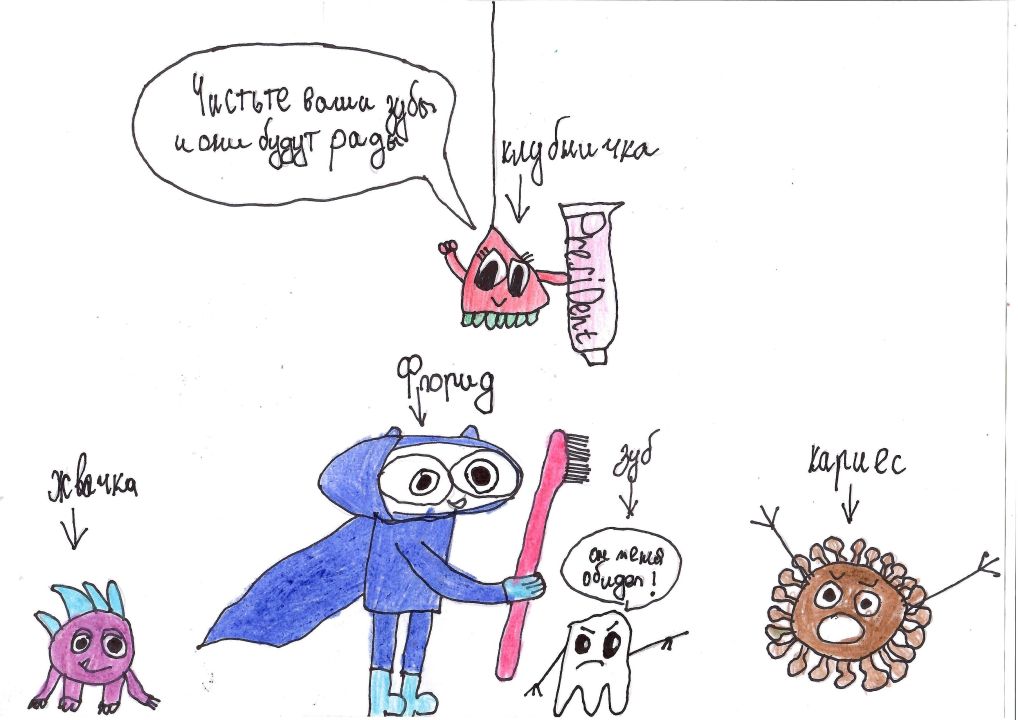 Чистьте ваши зубы
и они будут рады
клубничка
PresiDent
Фторид
зуб
кариес
жвачка
он меня
обидел!